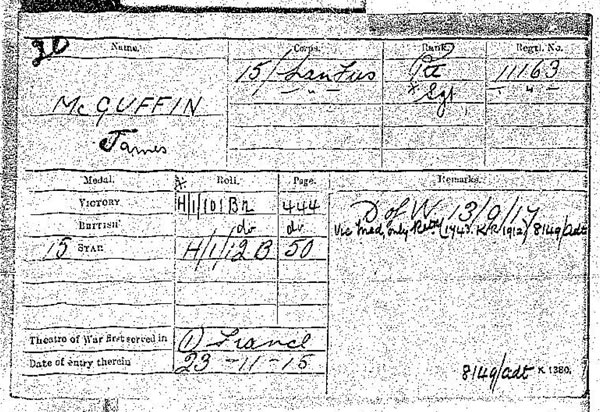 Name. Corps. Rank Regtl. No.
McGUFFIN 15/Lan Fus Pte 11163
James — " — * Sgt — " —
Medal. * Roll. Page. Remarks.
VICTORY H/1/101 B2 444 D of W 13/9/17
BRITISH do do Vic Med, only Retd (1743 K.R. 1912) 8149/adt
15 STAR H/1/12 B 50
Theatre of War first served in (1) France
Date of entry therein 23-11-15
8149/adt K 1380.